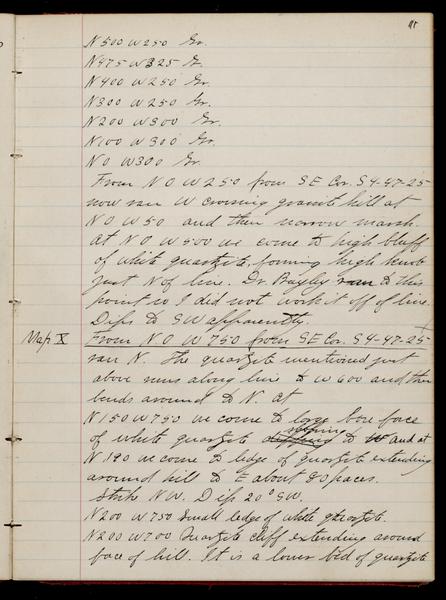 N 500 W 250 Gr.
N 475 W 325 G.
N 400 W 250 Gr.
N 300 W 250 Gr.
N 200 W 300 Gr.
N 100 W 300 Gr.
N 0 W 300 Gr.
From N 0 W 250 from S E Cor. S 4-47-25
now ran W crossing granite hill at
N 0 W 50 and then narrow marsh.
At N 0 W 500 we come to high bluff
of white quartzite, forming high knob
just N of line. Dr. Bayley ran to this
point so I did not work it off of line.
Dips to SW apparently.
Map X From N 0 W 750 from S E Cor. S 4-47-25
ran N. The quartzite mentioned just
above runs along line to W 600 and then
bends around to N. At
N 150 W 750 we come to large bare face
of white quartzite sloping to W and at
N 190 we come to ledge of quartzite extending
around hill to E about 80 paces.
Strike N W. Dip 20° SW.
N 200 W 750 Small ledge of white quartzite.
N 200 W 700 Quartzite cliff extending around
face of hill. It is a lower bed of quartzite